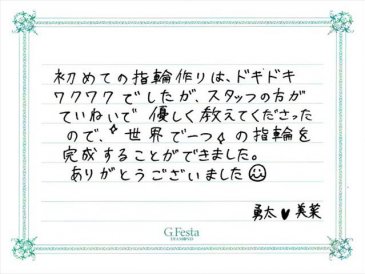 初めての指輪作りは、ドキドキ
ワクワクでしたが、スタッフの方が
ていねいで優しく教えてくださった
ので、"世界で一つ"の指輪を
完成することができました。
ありがとうございました☺
勇太♥美菜
G.Festa